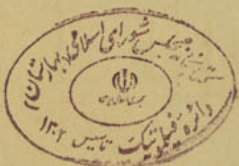 مجلس شورای اسلامی (بهارستان)
دائره فیلاتلیک تاسیس ۱۳۰۲